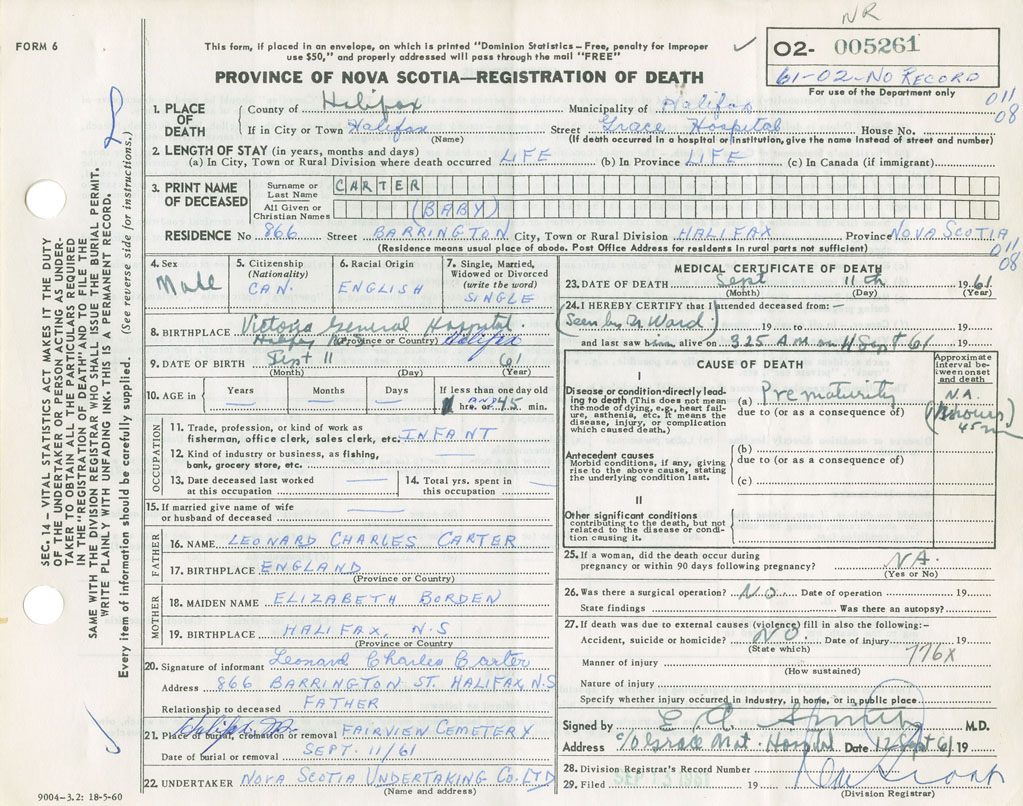 NR
FORM 6
This form, if placed in an envelope, on which is printed "Dominion Statistics – Free, penalty for improper
use $50," and properly addressed will pass through the mail "FREE"
PROVINCE OF NOVA SCOTIA—REGISTRATION OF DEATH
✓ 02- 005261
61-02-NO RECORD
For use of the Department only
011
08
1. PLACE OF DEATH
County of Halifax Municipality of Halifax
If in City or Town Halifax Street Grace Hospital House No.
(Name) (If death occurred in a hospital or institution, give the name instead of street and number)
2. LENGTH OF STAY (in years, months and days)
(a) In City, Town or Rural Division where death occurred LIFE (b) In Province LIFE (c) In Canada (if immigrant)
3. PRINT NAME OF DECEASED
Surname or Last Name CARTER
All Given or Christian Names (BABY)
RESIDENCE No 866 Street BARRINGTON City, Town or Rural Division HALIFAX Province NOVA SCOTIA
(Residence means usual place of abode. Post Office Address for residents in rural parts not sufficient)
011
08
4. Sex
Male
5. Citizenship
(Nationality)
CAN.
6. Racial Origin
ENGLISH
7. Single, Married,
Widowed or Divorced
(write the word)
SINGLE
8. BIRTHPLACE Victoria General Hospital.
Halifax (Province or Country) Halifax
9. DATE OF BIRTH Sept 11 61
(Month) (Day) (Year)
10. AGE in
Years
Months
Days
If less than one day old
hrs. or AND 45 min.
OCCUPATION
11. Trade, profession, or kind of work as
fisherman, office clerk, sales clerk, etc. INFANT
12. Kind of industry or business, as fishing,
bank, grocery store, etc.
13. Date deceased last worked
at this occupation
14. Total yrs. spent in
this occupation
15. If married give name of wife
or husband of deceased
FATHER
16. NAME LEONARD CHARLES CARTER
17. BIRTHPLACE ENGLAND
(Province or Country)
MOTHER
18. MAIDEN NAME ELIZABETH BORDEN
19. BIRTHPLACE HALIFAX, N.S
(Province or Country)
20. Signature of informant Leonard Charles Carter
Address 866 BARRINGTON ST. HALIFAX, N.S
Relationship to deceased FATHER
21. Place of burial, cremation or removal FAIRVIEW CEMETERY
Date of burial or removal SEPT. 11/61
22. UNDERTAKER NOVA SCOTIA UNDERTAKING CO. LTD
(Name and address)
MEDICAL CERTIFICATE OF DEATH
23. DATE OF DEATH Sept 11th 1961
(Month) (Day) (Year)
24. I HEREBY CERTIFY that I attended deceased from: —
(Seen by Dr Ward) 19 to 19
and last saw h alive on 325 A.M. on 11 Sept 61 19
CAUSE OF DEATH
Approximate
interval be-
tween onset
and death
I
Disease or condition directly lead-
ing to death (This does not mean
the mode of dying, e.g., heart fail-
ure, asthenia, etc. It means the
disease, injury, or complication
which caused death.)
(a) Prematurity
due to (or as a consequence of)
N.A.
hours
45 m
Antecedent causes
Morbid conditions, if any, giving
rise to the above cause, stating
the underlying condition last.
(b)
due to (or as a consequence of)
(c)
II
Other significant conditions
contributing to the death, but not
related to the disease or condi-
tion causing it.
25. If a woman, did the death occur during
pregnancy or within 90 days following pregnancy? NA.
(Yes or No)
26. Was there a surgical operation? NO Date of operation 19
State findings Was there an autopsy?
27. If death was due to external causes (violence) fill in also the following:—
Accident, suicide or homicide? NO Date of injury 19
(State which)
776X
Manner of injury
(How sustained)
Nature of injury
Specify whether injury occurred in industry, in home, or in public place
Signed by E. A. M.D.
Address c/o Grace Mat. Hospital Date 12 Sept 61 19
28. Division Registrar's Record Number
29. Filed SEP 13 1961 19
(Division Registrar)
SEC. 14 – VITAL STATISTICS ACT MAKES IT THE DUTY
OF THE UNDERTAKER OR PERSON ACTING AS UNDER-
TAKER TO OBTAIN ALL THE PARTICULARS REQUIRED
IN THE "REGISTRATION OF DEATH" AND TO FILE THE
SAME WITH THE DIVISION REGISTRAR WHO SHALL ISSUE THE BURIAL PERMIT.
WRITE PLAINLY WITH UNFADING INK. THIS IS A PERMANENT RECORD.
Every item of information should be carefully supplied. (See reverse side for instructions.)
9004-3.2: 18-5-60